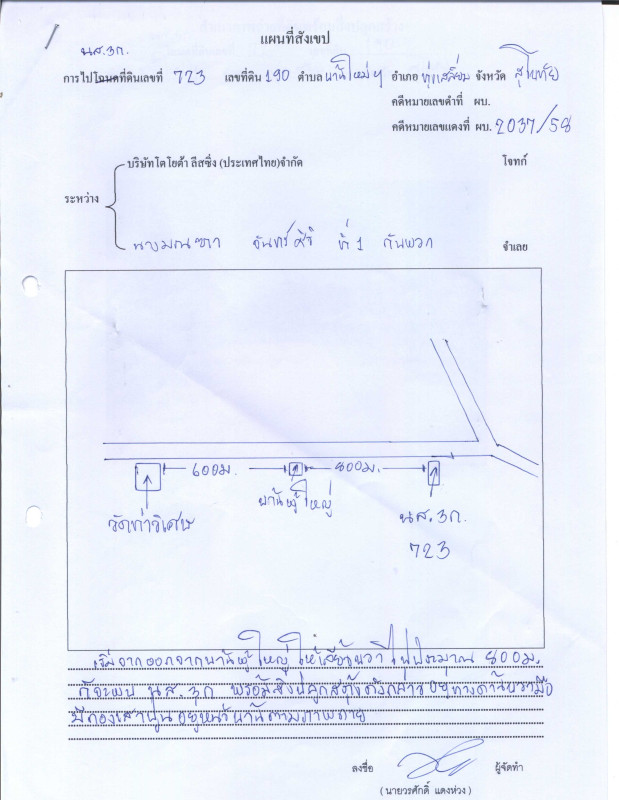 แผนที่สังเขป
นส.3ก.
การไปโฉนดที่ดินเลขที่ 723 เลขที่ดิน 190 ตำบล บ้านใหม่ฯ อำเภอ ทุ่งเสลี่ยม จังหวัด สุโขทัย
คดีหมายเลขดำที่ ผบ.
คดีหมายเลขแดงที่ ผบ. 2037/58
บริษัทโตโยต้า ลีสซิ่ง (ประเทศไทย)จำกัด โจทก์
ระหว่าง
จันทร์ศิริ ที่ 1 กับพวก จำเลย
600ม. 800ม.
บ้านผู้ใหญ่
วัดท่าวิเศษ
นส.3ก.
723
เริ่มจากออกจากบ้านผู้ใหญ่ ให้เลี้ยวขวา ไปประมาณ 800ม.
ก็จะพบ นส.3ก พร้อมสิ่งปลูกสร้างดังกล่าว อยู่ทางด้านขวามือ
มีกองเสาปูนอยู่หน้าบ้านตามภาพถ่าย
ลงชื่อ ผู้จัดทำ
(นายวรศักดิ์ แดงห่วง)